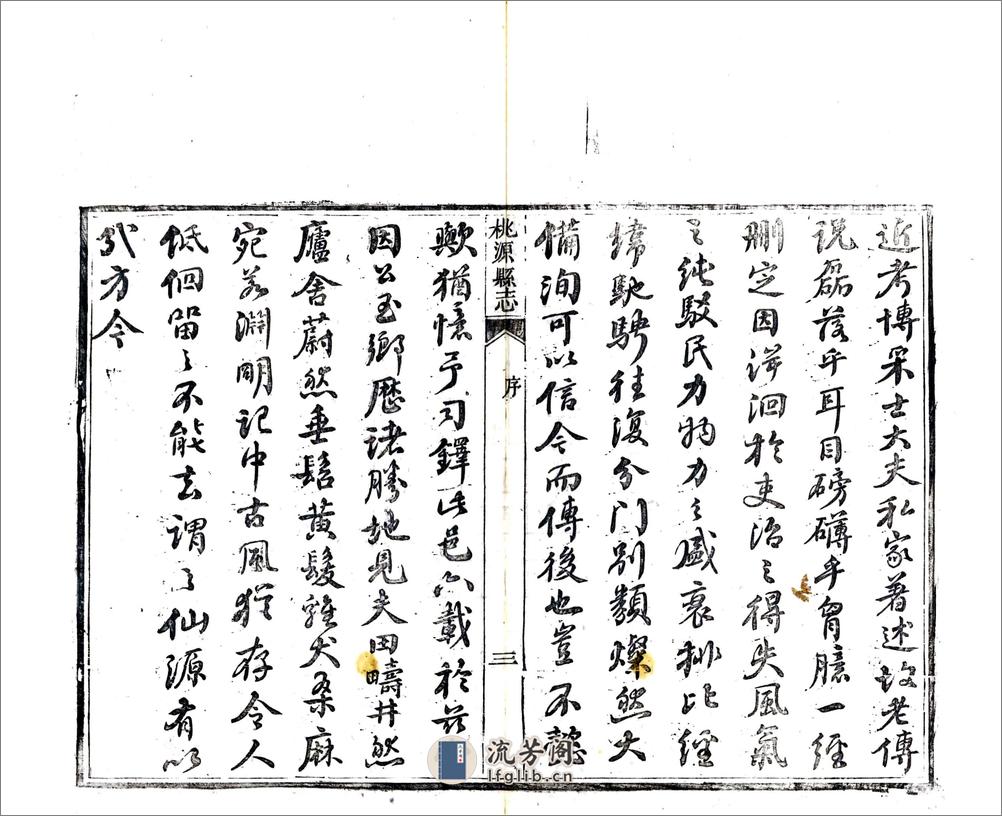 近考博采士大夫私家著述故老傳
說磊落乎耳目磅礴乎胷臆一經
刪定因泝洄於吏治之得失風氣
之純駁民力物力之盛衰排比經
緯馳騁往復分門別類燦然大
備洵可以信今而傳後也豈不懿
歟猶憶予司鐸此邑六載於茲
因公至鄉歷諸勝地見夫田疇井然
廬舍蔚然垂髫黃髮雞犬桑麻
宛若淵明記中古風猶存令人
低佪留之不能去謂之仙源有以
也方今
桃源縣志
序
三
流芳閣
lfglib.cn